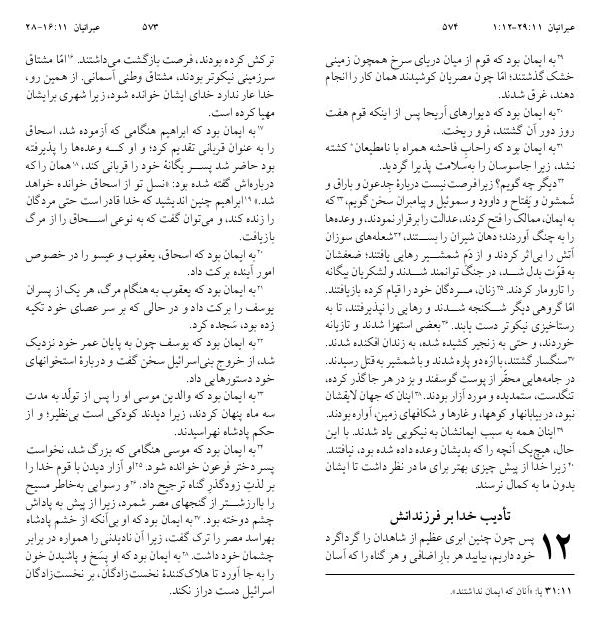 عبرانیان ۱۶:۱۱-۲۸
۵۷۳
ترکش کرده بودند، فرصت بازگشت می‌داشتند. ۱۶امّا مشتاق
سرزمینی نیکوتر بودند، مشتاق وطنی آسمانی. از همین رو،
خدا عار ندارد خدای ایشان خوانده شود، زیرا شهری برایشان
مهیا کرده است.
۱۷به ایمان بود که ابراهیم هنگامی که آزموده شد، اسحاق
را به عنوان قربانی تقدیم کرد؛ و او که وعده‌ها را پذیرفته
بود حاضر شد پسر یگانهٔ خود را قربانی کند، ۱۸همان را که
درباره‌اش گفته شده بود: «نسل تو از اسحاق خوانده خواهد
شد.» ۱۹ابراهیم چنین اندیشید که خدا قادر است حتی مردگان
را زنده کند، و می‌توان گفت که به نوعی اسحاق را از مرگ
بازیافت.
۲۰به ایمان بود که اسحاق، یعقوب و عیسو را در خصوص
امور آینده برکت داد.
۲۱به ایمان بود که یعقوب به هنگام مرگ، هر یک از پسران
یوسف را برکت داد و در حالی که بر سر عصای خود تکیه
زده بود، سَجده کرد.
۲۲به ایمان بود که یوسف چون به پایان عمر خود نزدیک
شد، از خروج بنی‌اسرائیل سخن گفت و دربارهٔ استخوانهای
خود دستورهایی داد.
۲۳به ایمان بود که والدین موسی او را پس از تولّد به مدت
سه ماه پنهان کردند، زیرا دیدند کودکی است بی‌نظیر؛ و از
حکم پادشاه نهراسیدند.
۲۴به ایمان بود که موسی هنگامی که بزرگ شد، نخواست
پسر دختر فرعون خوانده شود. ۲۵او آزار دیدن با قوم خدا را
بر لذتِ زودگذرِ گناه ترجیح داد. ۲۶و رسوایی به‌خاطر مسیح
را باارزشتر از گنجهای مصر شمرد، زیرا از پیش به پاداش
چشم دوخته بود. ۲۷به ایمان بود که او بی‌آنکه از خشم پادشاه
بهراسد مصر را ترک گفت، زیرا آن نادیدنی را همواره در برابر
چشمان خود داشت. ۲۸به ایمان بود که او پسَخ و پاشیدن خون
را به جا آورد تا هلاک‌کنندهٔ نخست‌زادگان، بر نخست‌زادگان
اسرائیل دست دراز نکند.
۵۷۴
عبرانیان ۲۹:۱۱-۱:۱۲
۲۹به ایمان بود که قوم از میان دریای سرخ همچون زمینی
خشک گذشتند؛ امّا چون مصریان کوشیدند همان کار را انجام
دهند، غرق شدند.
۳۰به ایمان بود که دیوارهای اَریحا پس از اینکه قوم هفت
روز دور آن گشتند، فرو ریخت.
۳۱به ایمان بود که راحابِ فاحشه همراه با نامطیعان* کشته
نشد، زیرا جاسوسان را به‌سلامت پذیرا گردید.
۳۲دیگر چه گویم؟ زیرا فرصت نیست دربارهٔ جِدعون و باراق و
شَمشون و یَفتاح و داوود و سموئیل و پیامبران سخن گویم، ۳۳که
به ایمان، ممالک را فتح کردند، عدالت را برقرار نمودند، و وعده‌ها
را به چنگ آوردند؛ دهان شیران را بستند، ۳۴شعله‌های سوزان
آتش را بی‌اثر کردند و از دَم شمشیر رهایی یافتند؛ ضعفشان
به قوّت بدل شد، در جنگ توانمند شدند و لشکریان بیگانه
را تارومار کردند. ۳۵زنان، مردگان خود را قیام کرده بازیافتند.
امّا گروهی دیگر شکنجه شدند و رهایی را نپذیرفتند، تا به
رستاخیزی نیکوتر دست یابند. ۳۶بعضی استهزا شدند و تازیانه
خوردند، و حتی به زنجیر کشیده شده، به زندان افکنده شدند.
۳۷سنگسار گشتند، با ارّه دو پاره شدند و با شمشیر به قتل رسیدند.
در جامه‌هایی محقّر از پوست گوسفند و بز در هر جا گذر کرده،
تنگدست، ستمدیده و مورد آزار بودند. ۳۸اینان که جهان لایقشان
نبود، در بیابانها و کوهها، و غارها و شکافهای زمین، آواره بودند.
۳۹اینان همه به سبب ایمانشان به نیکویی یاد شدند. با این
حال، هیچ‌یک آنچه را که بدیشان وعده داده شده بود، نیافتند.
۴۰زیرا خدا از پیش چیزی بهتر برای ما در نظر داشت تا ایشان
بدون ما به کمال نرسند.
تأدیب خدا بر فرزندانش
۱۲ پس چون چنین ابری عظیم از شاهدان را گرداگرد
خود داریم، بیایید هر بارِ اضافی و هر گناه را که آسان
۳۱:۱۱ یا: «آنان که ایمان نداشتند».